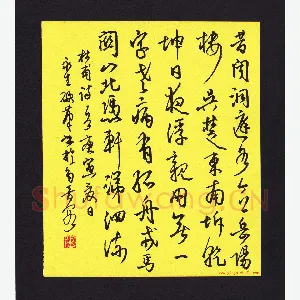 昔闻洞庭水今上岳陽
樓吴楚東南坼乾
坤日夜浮親朋無一
字老病有孤舟戎馬
關山北憑軒涕泗流
杜甫詩庚寅夏日